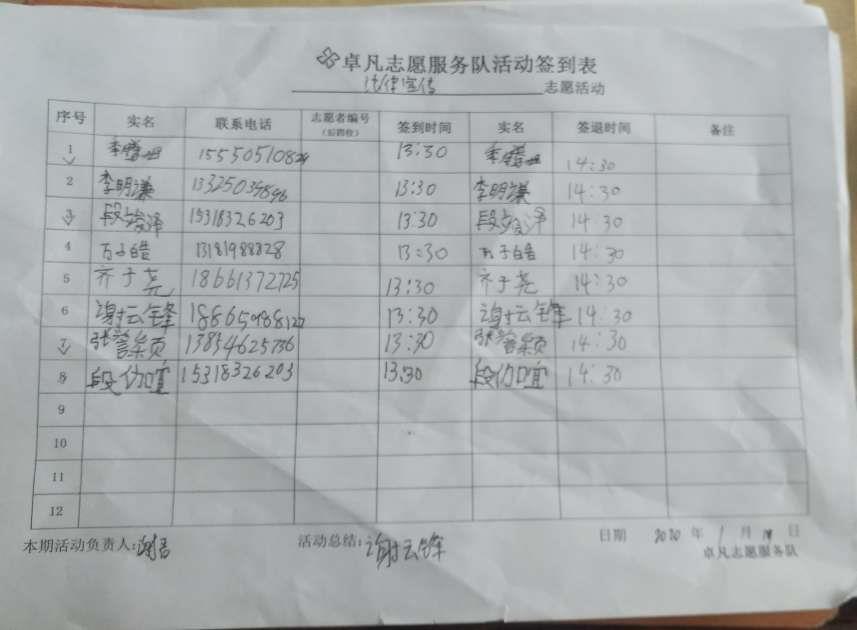 卓凡志愿服务队活动签到表
法律宣传 志愿活动
序号 实名 联系电话 志愿者编号 签到时间 实名 签退时间 备注
(后四位)
1 15550510829 13:30 14:30
2 李明谦 13:30 李明谦 14:30
3 15318326203 13:30 14:30
4 13181988828 13:30 14:30
5 齐于尧 18661372725 13:30 齐于尧 14:30
6 谢云锋 18865988127 13:30 谢云锋 14:30
7 13854625736 13:30 14:30
8 15318326203 13:30 14:30
9
10
11
12
本期活动负责人: 活动总结: 谢云锋 日期 2020 年 1 月 日
卓凡志愿服务队